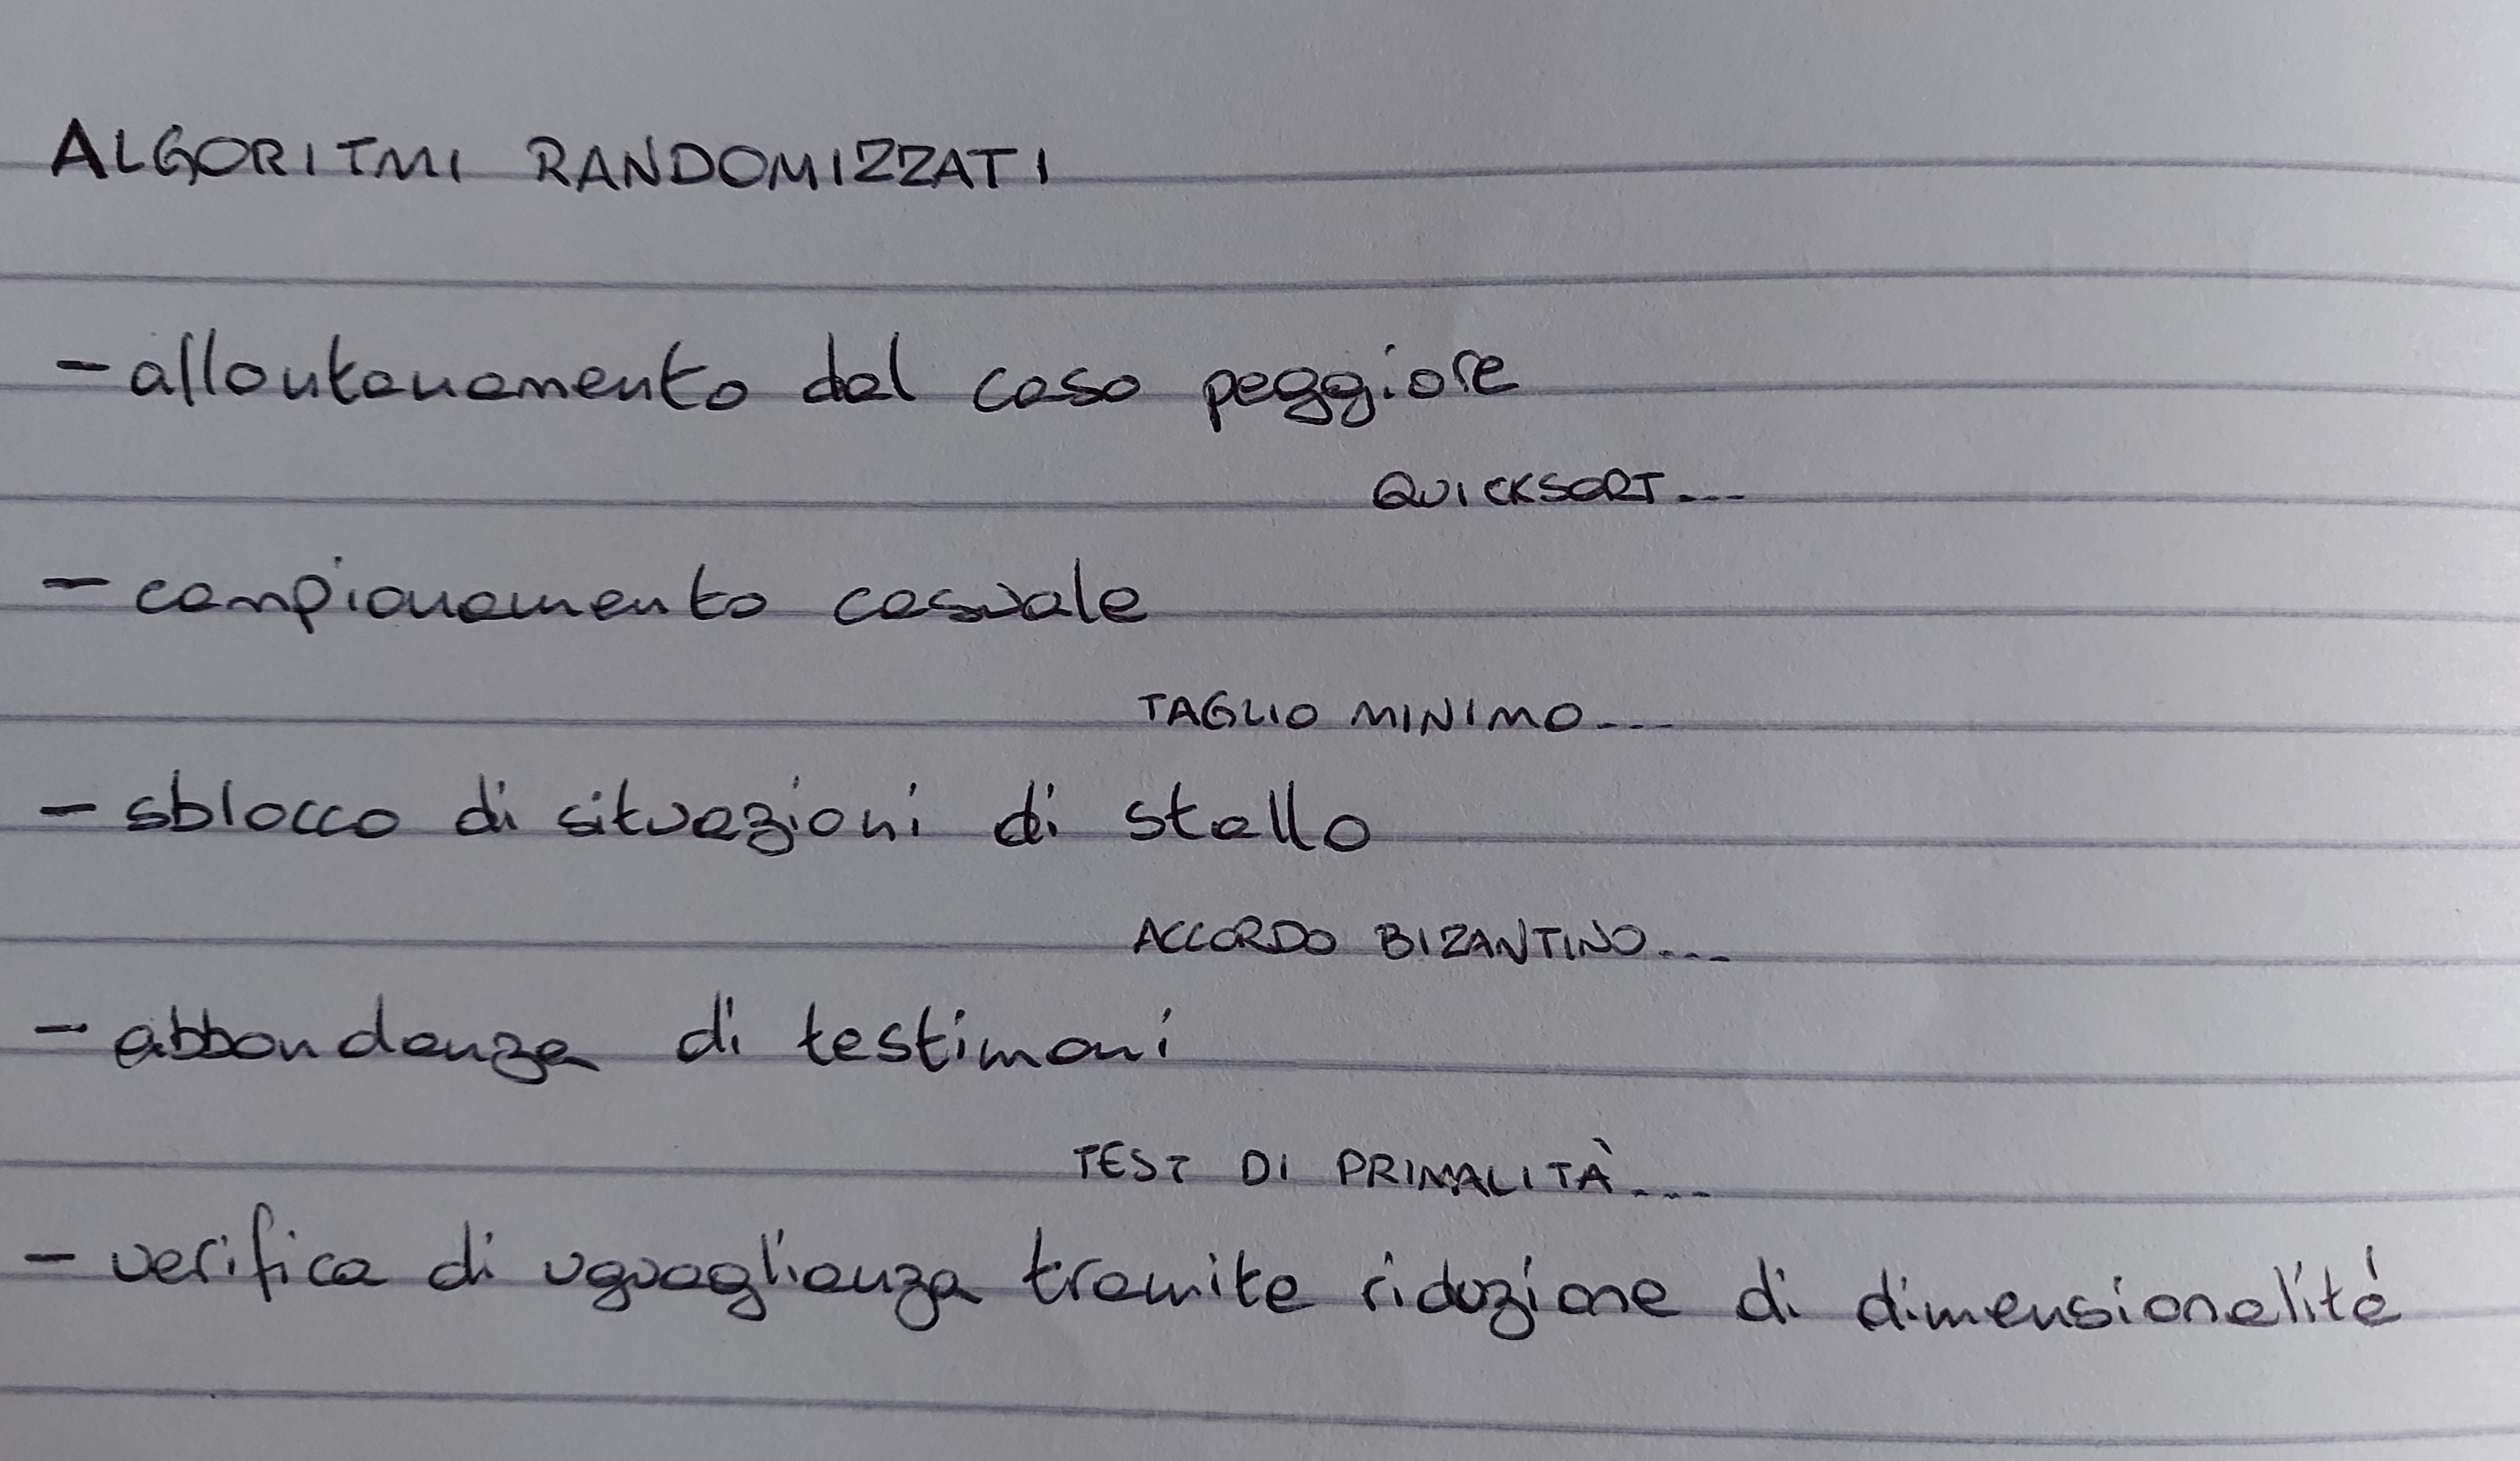 ALGORITMI RANDOMIZZATI
- allontanamento dal caso peggiore
QUICKSORT...
- campionamento casuale
TAGLIO MINIMO...
- sblocco di situazioni di stallo
ACCORDO BIZANTINO...
- abbondanza di testimoni
TEST DI PRIMALITÀ...
- verifica di uguaglianza tramite riduzione di dimensionalità